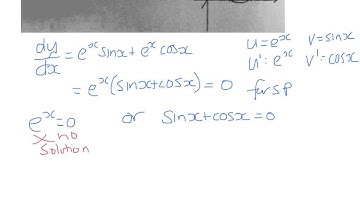 dy/dx = e^x sinx + e^x cosx   u = e^x   v = sinx
u' = e^x   v' = cosx
= e^x (sinx + cosx) = 0   for sp
e^x = 0   or   sinx + cosx = 0
no
solution